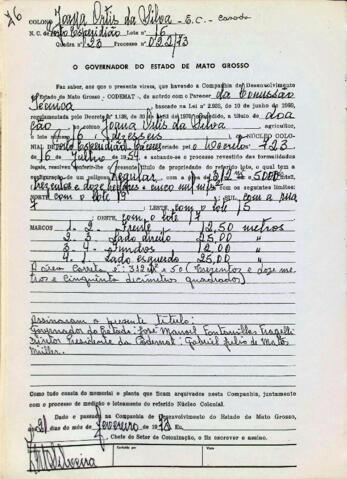 76
COLONO Joana Ortis da Silva - S.C. - Casada
N. C. de Porto Esperidião Lote n.º 16
Quadra n.º 23 Processo n.º 022/73
O GOVERNADOR DO ESTADO DE MATO GROSSO
Faz saber, aos que a presente virem, que havendo a Companhia de Desenvolvimento
do Estado de Mato Grosso - CODEMAT -, de acordo com o Parecer da Comissão
Técnica baseada na Lei 2.925, de 10 de junho de 1969,
regulamentada pelo Decreto N.º 1.138, de de 1970 a título de doa
ção ao Joana Ortis da Silva agricultor,
o lote n.º 16 do NÚCLEO COLO-
NIAL DE Porto Esperidião, criado por Decreto 723
de 16 de Julho de 54, e achando-se o processo revestido das formalidades
legais, resolveu conferir-lhe o presente título de propriedade do referido lote, o qual tem a
configuração de um polígono regular com 312 m² 5000
trezentos e doze metros e cinco mil m² com os seguintes limites:
NORTE com o lote 19 SUL com a rua
7 LESTE com o lote 15
OESTE com o lote 17
MARCOS 1. 2. Frente 12,50 metros
2. 3. Lado direito 25,00 "
3. 4. Fundos 12,00 "
4. 1. Lado esquerdo 25,00 "
A área correta é: 312 m² 50 (Trezentos e doze me
tros e cinquenta decimetros quadrados)
Assinaram o presente título:
Governador do Estado: José Manoel Fontanillas Fragelli
Diretor Presidente da Codemat: Gabriel Julio de Mato
Müller.
Tudo como consta do memorial e planta que ficam arquivados nesta Companhia, juntamente
com o processo de medição e loteamento do referido Núcleo Colonial.
Dado e passado na Companhia de Desenvolvimento do Estado de Mato Grosso,
aos 21 dias do mês de Fevereiro de 1973 Eu,
Chefe do Setor de Colonização, o fiz escrever e assino.
Conferido por Visto